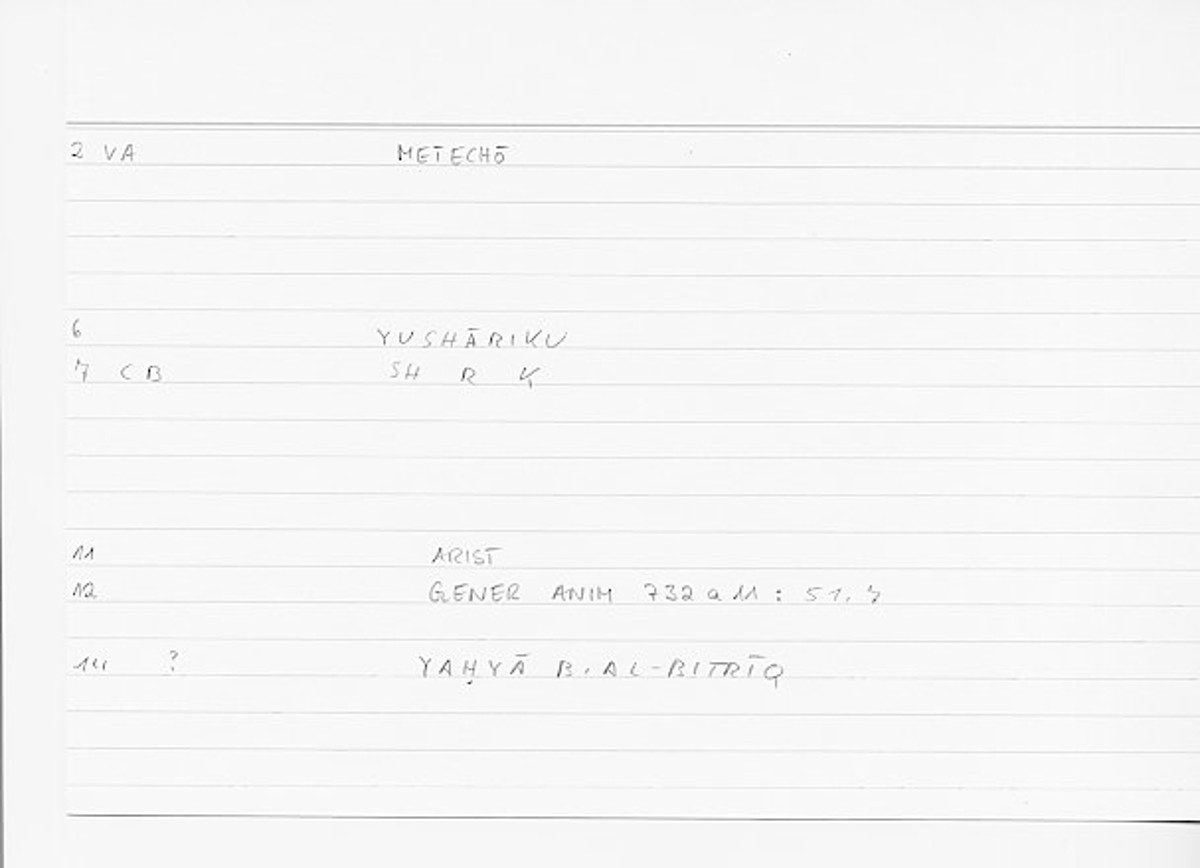 2 VA METECHŌ
6 YUSHĀRIKU
7 CB SH R K
11 ARIST
12 GENER ANIM 732 a 11 : 51.
14 ? YAḤYĀ B. AL-BITRĪQ